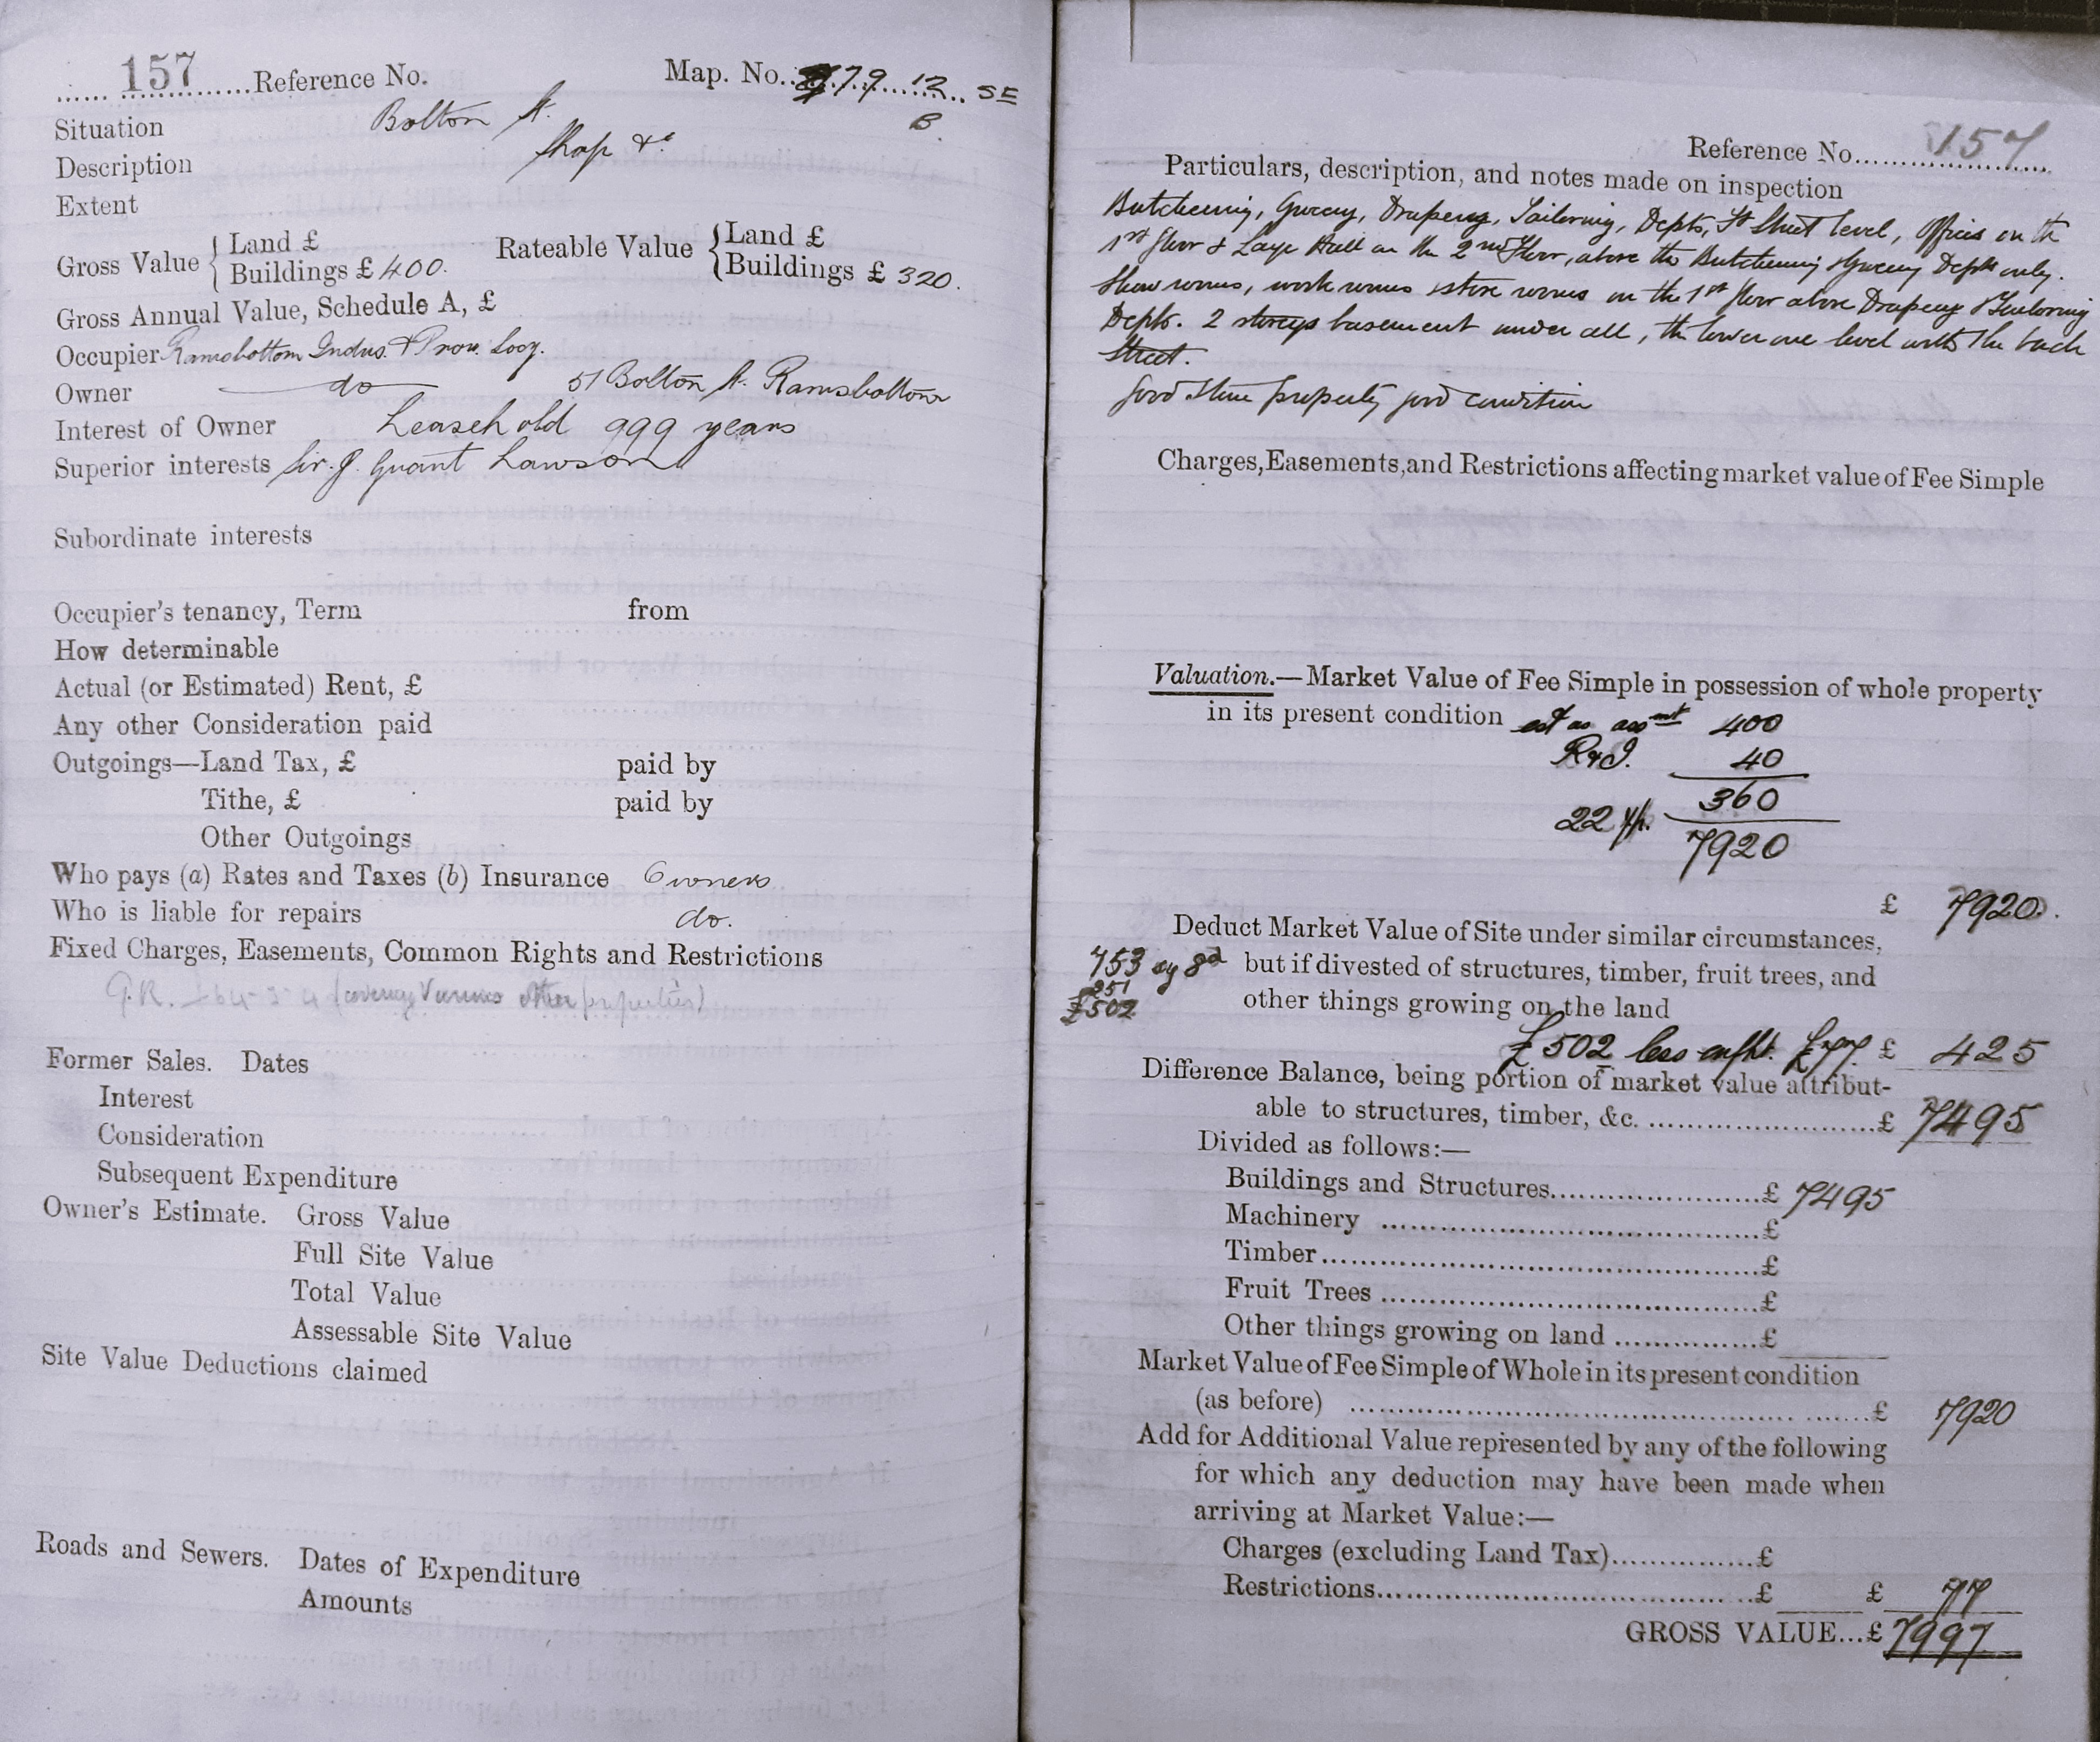 157 Reference No. Map. No. 79 12 SE
B
Situation Bolton St.
Description Shop &c
Extent
Gross Value { Land £ Rateable Value { Land £
Buildings £ 400. Buildings £ 320.
Gross Annual Value, Schedule A, £
Occupier Ramsbottom Indus. & Prov. Socy.
Owner do 51 Bolton St. Ramsbottom
Interest of Owner Leasehold 999 years
Superior interests Sir. J. Grant Lawson
Subordinate interests
Occupier's tenancy, Term from
How determinable
Actual (or Estimated) Rent, £
Any other Consideration paid
Outgoings—Land Tax, £ paid by
Tithe, £ paid by
Other Outgoings
Who pays (a) Rates and Taxes (b) Insurance Owners
Who is liable for repairs do.
Fixed Charges, Easements, Common Rights and Restrictions
G.R. (covering various other properties)
Former Sales. Dates
Interest
Consideration
Subsequent Expenditure
Owner's Estimate. Gross Value
Full Site Value
Total Value
Assessable Site Value
Site Value Deductions claimed
Roads and Sewers. Dates of Expenditure
Amounts
Reference No. 157
Particulars, description, and notes made on inspection
Butchering, Grocery, Drapery, Tailoring, Depts, St Street level, Offices on the
1st floor & Large Hall on the 2nd floor, above the Butchering & Grocery Depts only.
Show rooms, work rooms & store rooms on the 1st floor above Drapery & Tailoring
Depts. 2 storeys basement under all, the lower one level with the back
Street.
Good stone property good condition
Charges, Easements, and Restrictions affecting market value of Fee Simple
Valuation.—Market Value of Fee Simple in possession of whole property
in its present condition est as assmt 400
R & I. 40
360
22 yp. 7920
£ 7920.
Deduct Market Value of Site under similar circumstances,
753 sy 8d but if divested of structures, timber, fruit trees, and
251
£502 other things growing on the land
£502 less enfht. £77 £ 425
Difference Balance, being portion of market value attribut-
able to structures, timber, &c. £ 7495
Divided as follows:—
Buildings and Structures £ 7495
Machinery £
Timber £
Fruit Trees £
Other things growing on land £
Market Value of Fee Simple of Whole in its present condition
(as before) £ 7920
Add for Additional Value represented by any of the following
for which any deduction may have been made when
arriving at Market Value:—
Charges (excluding Land Tax) £
Restrictions £ £ 77
GROSS VALUE...£ 7997